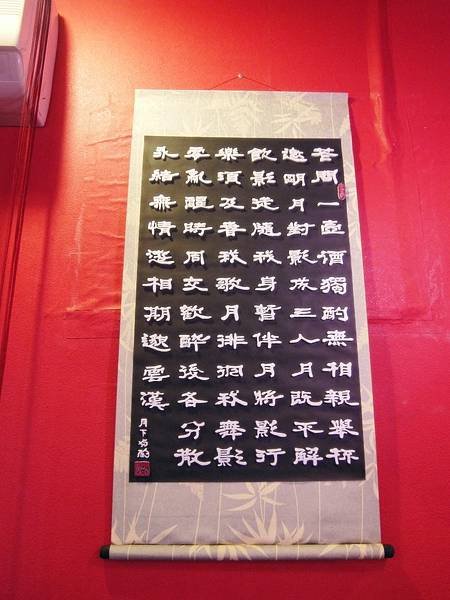 花間一壺酒獨酌無相親舉杯
邀明月對影成三人月既不解
飲影徒隨我身暫伴月將影行
樂須及春我歌月徘徊我舞影
零亂醒時同交歡醉後各分散
永結無情遊相期邈雲漢
月下独酌